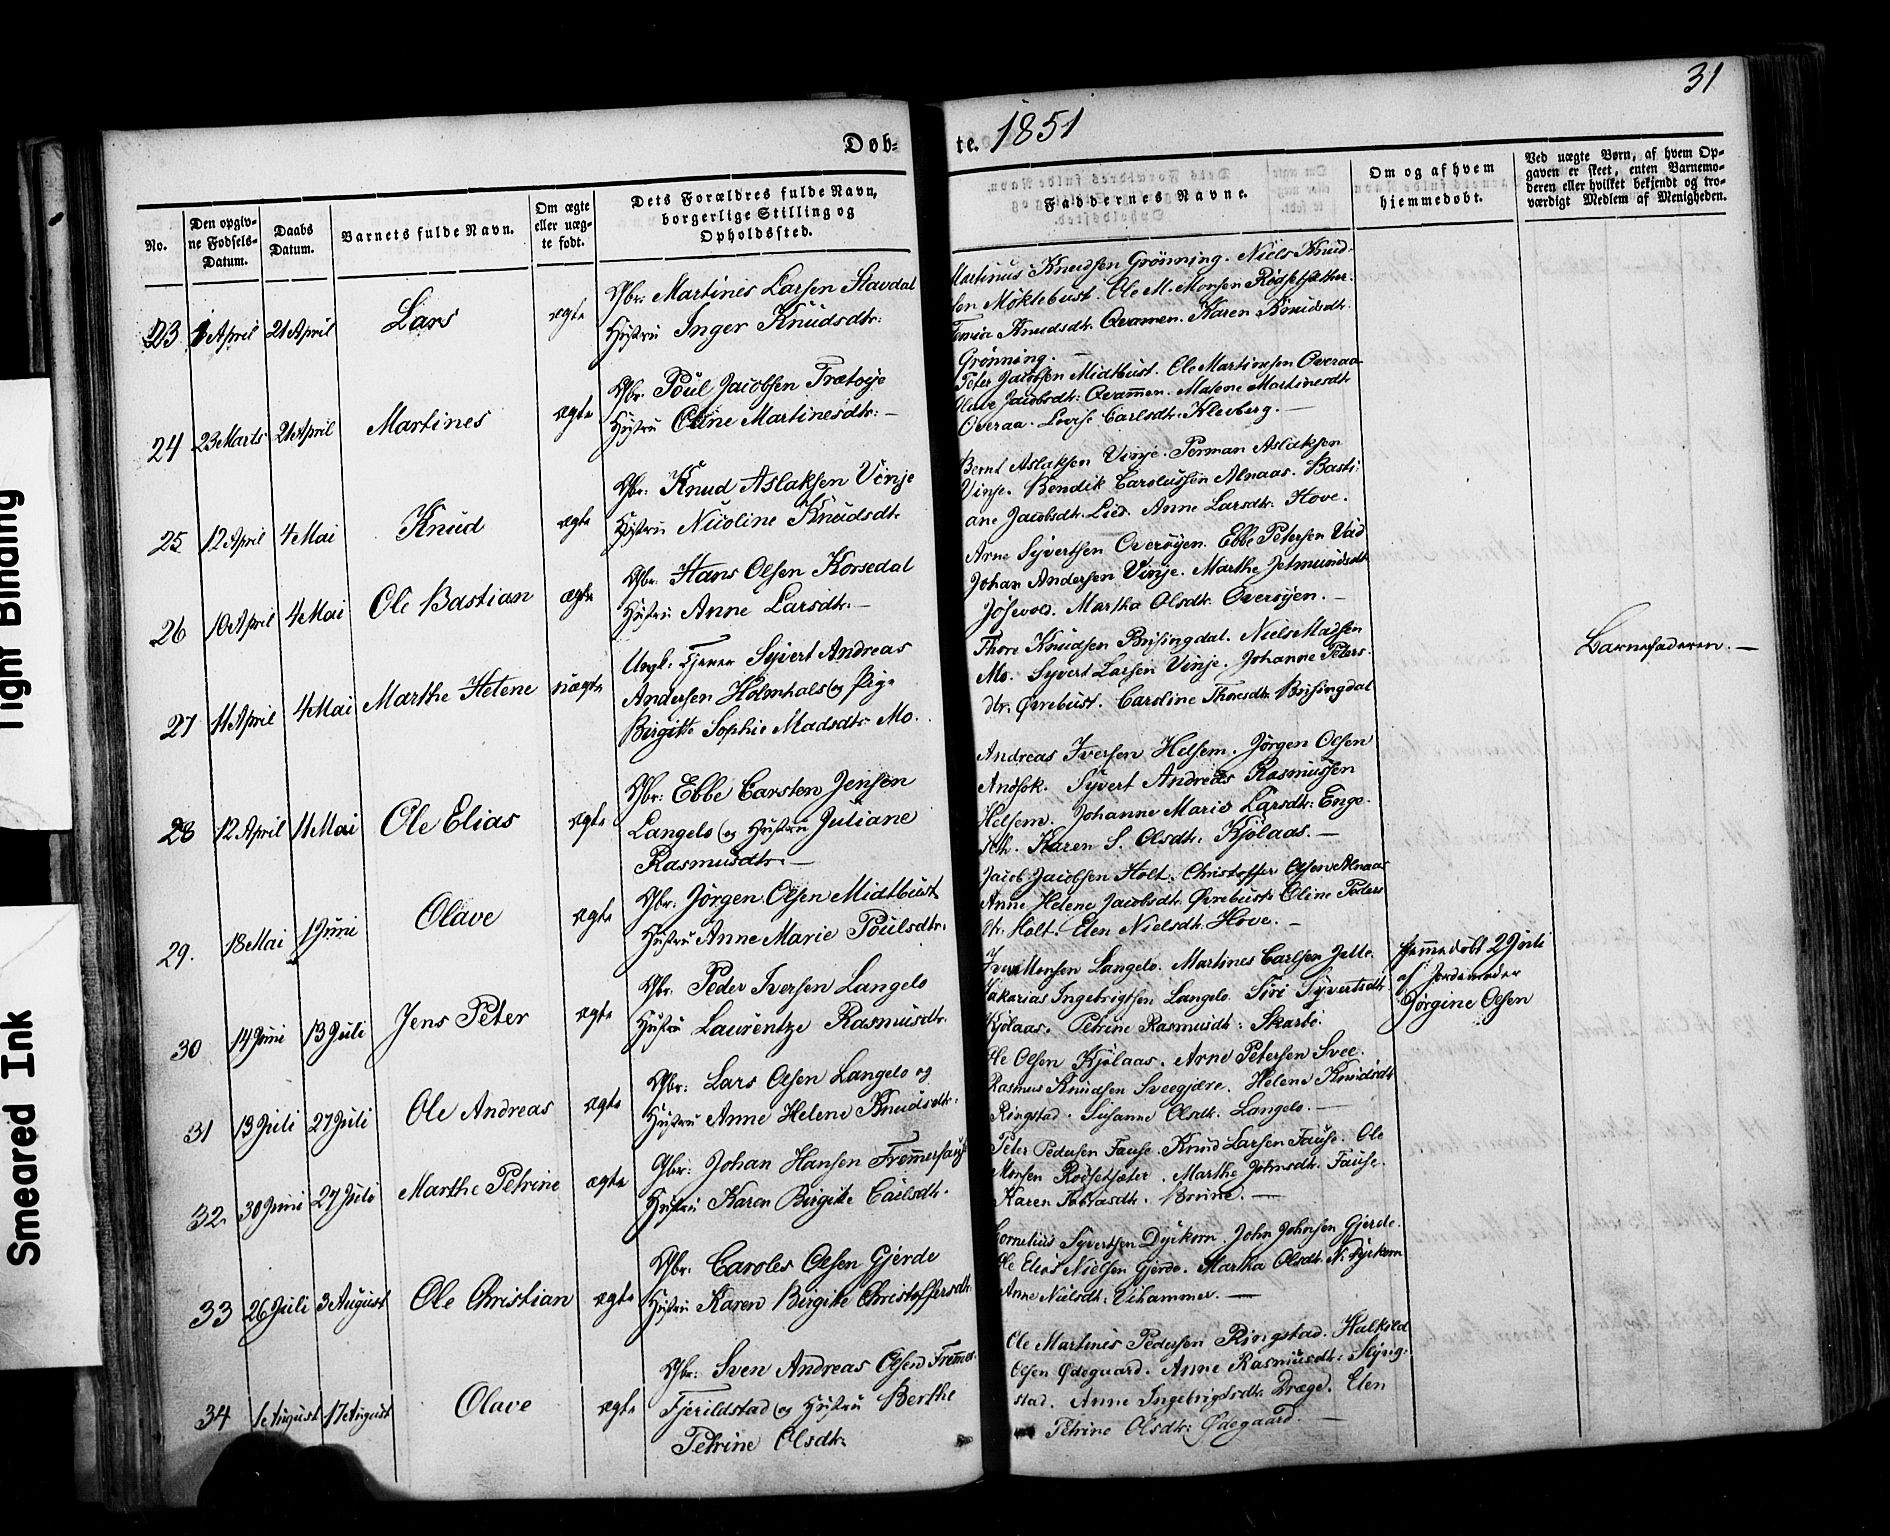 31
Døb-
te. 1851
No.
Den opgiv-
ne Fødsels-
Datum.
Daabs
Datum.
Barnets fulde Navn.
Om ægte
eller uæg-
te født.
Dets Forældres fulde Navn,
borgerlige Stilling og
Opholdssted.
Faddernes Navne.
Om og af hvem
hjemmedøbt.
Ved uægte Børn, af hvem Op-
gaven er skeet, enten Barnemo-
deren eller hvilket bekjendt og tro-
værdigt Medlem af Menigheden.
23 1 April 21 April Lars ægte
Gbr: Martines Larsen Stavdal
Hustru Inger Knudsdtr:
Martinus Knudsen Grønning. Niels Knud-
sen Møklebust. Ole M. Monsen Rødsetsæther.
Knudsdtr. Qvamen. Karen Knudsdtr.
Grønning. —
24 23 Marts 21 April Martines ægte
Gbr. Poul Jacobsen Trætøje
Hustru Oline Martinesdtr: —
Peter Jacobsen Midtbust. Ole Martinesen Overaa
Olave Jacobsdtr: Qvammen. Malene Martinesdtr
Overaa. Lovise Carlsdtr. Klevberg. —
25 12 April 4 Mai Knud ægte
Gbr: Knud Aslaksen Vinje
Hustru Nicoline Knudsdtr.
Bernt Aslaksen Vinje. Aslaksen
Vinje. Bendik Carolussen Alnaas. Basti-
ane Jacobsdtr. Lied. Anne Larsdtr. Hove.
26 10 April 4 Mai Ole Bastian ægte
Gbr. Hans Olsen Korsedal
Hustru Anne Larsdtr. —
Arne Syvertsen Overøyen. Ebbe Petersen Vad
Johan Andersen Vinje. Marthe Jetmundsdtr
Martha Olsdtr. Overøyen. —
27 11 April 4 Mai Marthe Helene uægte
Ungk. Tjener Syvert Andreas
Andersen Holmhals og Pige
Birgitte Sophie Madsdtr Mo.
Thore Knudsen Brusingdal. Niels Madsen
Mo. Syvert Larsen Vinje. Johanne Peters-
dtr. Øvrebust. Caroline Thoresdtr Brusingdal
Barnefaderen. —
28 12 April 11 Mai Ole Elias ægte
Gbr: Ebbe Carsten Jensen
Langelo og Hustru Juliane
Rasmusdtr. —
Andreas Iversen Helsem. Jørgen Olsen
Andsok. Syvert Andreas Rasmussen
Helsem. Johanne Marie Larsdtr: Enge-
Karen S. Olsdtr. Kjølaas. —
29. 18 Mai 1 Juni Olave ægte
Gbr: Jørgen Olsen Midtbust
Hustru Anne Marie Poulsdtr.
Jacob Jacobsen Holt. Christoffer Olsen Alnaas
Anne Helene Jacobsdtr Øvrebust. Oline Peders
dtr. Holt. Elen Nielsdtr. Hove. —
30 14 Juni 13 Juli Jens Peter ægte
Gbr. Peder Iversen Langelo
Hustru Laurentze Rasmusdtr.
Iver Monsen Langelo. Martines Carlsen
Zakarias Ingebrigtsen Langelo. Siri Syvertsdtr
Kjølaas. Petrine Rasmusdtr: Skarbø.
Hjemmedøbt 2 Juli
af Jordemoder
Jørgine Olsen
31 13 Juli 27 Juli Ole Andreas ægte
Gbr: Lars Olsen Langelo og
Hustru Anne Helene Knudsdtr.
Ole Olsen Kjølaas. Arne Petersen Svee.
Rasmus Knudsen Sveegjære. Helene Knudsdtr
Ringstad. Susanne Olsdtr. Langelo. —
32. 30 Juni 27 Juli Marthe Petrine ægte
Gbr: Johan Hansen Fremmerfause
Hustru Karen Birgitte Carlsdtr.
Peter Pedersen Fause. Knud Larsen Fause. Ole
Monsen Rødsetsæter. Marthe Johnsdtr. Fause.
Karen Tobiasdtr. —
33 26 Juli 3 August Ole Christian ægte
Gbr. Caroles Olsen Gjerde
Hustru Karen Birgitte Christoffersdtr.
Cornelius Syvertsen Dyrkorn. John Johnsen Gjerde.
Ole Elias Nielsen Gjerde. Martha Olsdtr. N. Dyrkorn
Anne Nielsdtr. Uthammer. —
34 1 August 17 August Olave ægte
Gbr: Sven Andreas Olsen Fremer-
Fjerildstad og Hustru Berthe
Petrine Olsdtr.
Ole Martines Pedersen Ringstad. Halkild
Olsen Ødegaard. Anne Rasmusdtr:
stad. Anne Ingebrigtsdtr. Drage. Elen
Petrine Olsdtr: Ødegaard. —
Tight Binding
Smeared Ink